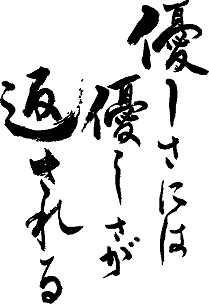 優しさには
優しさが
返される